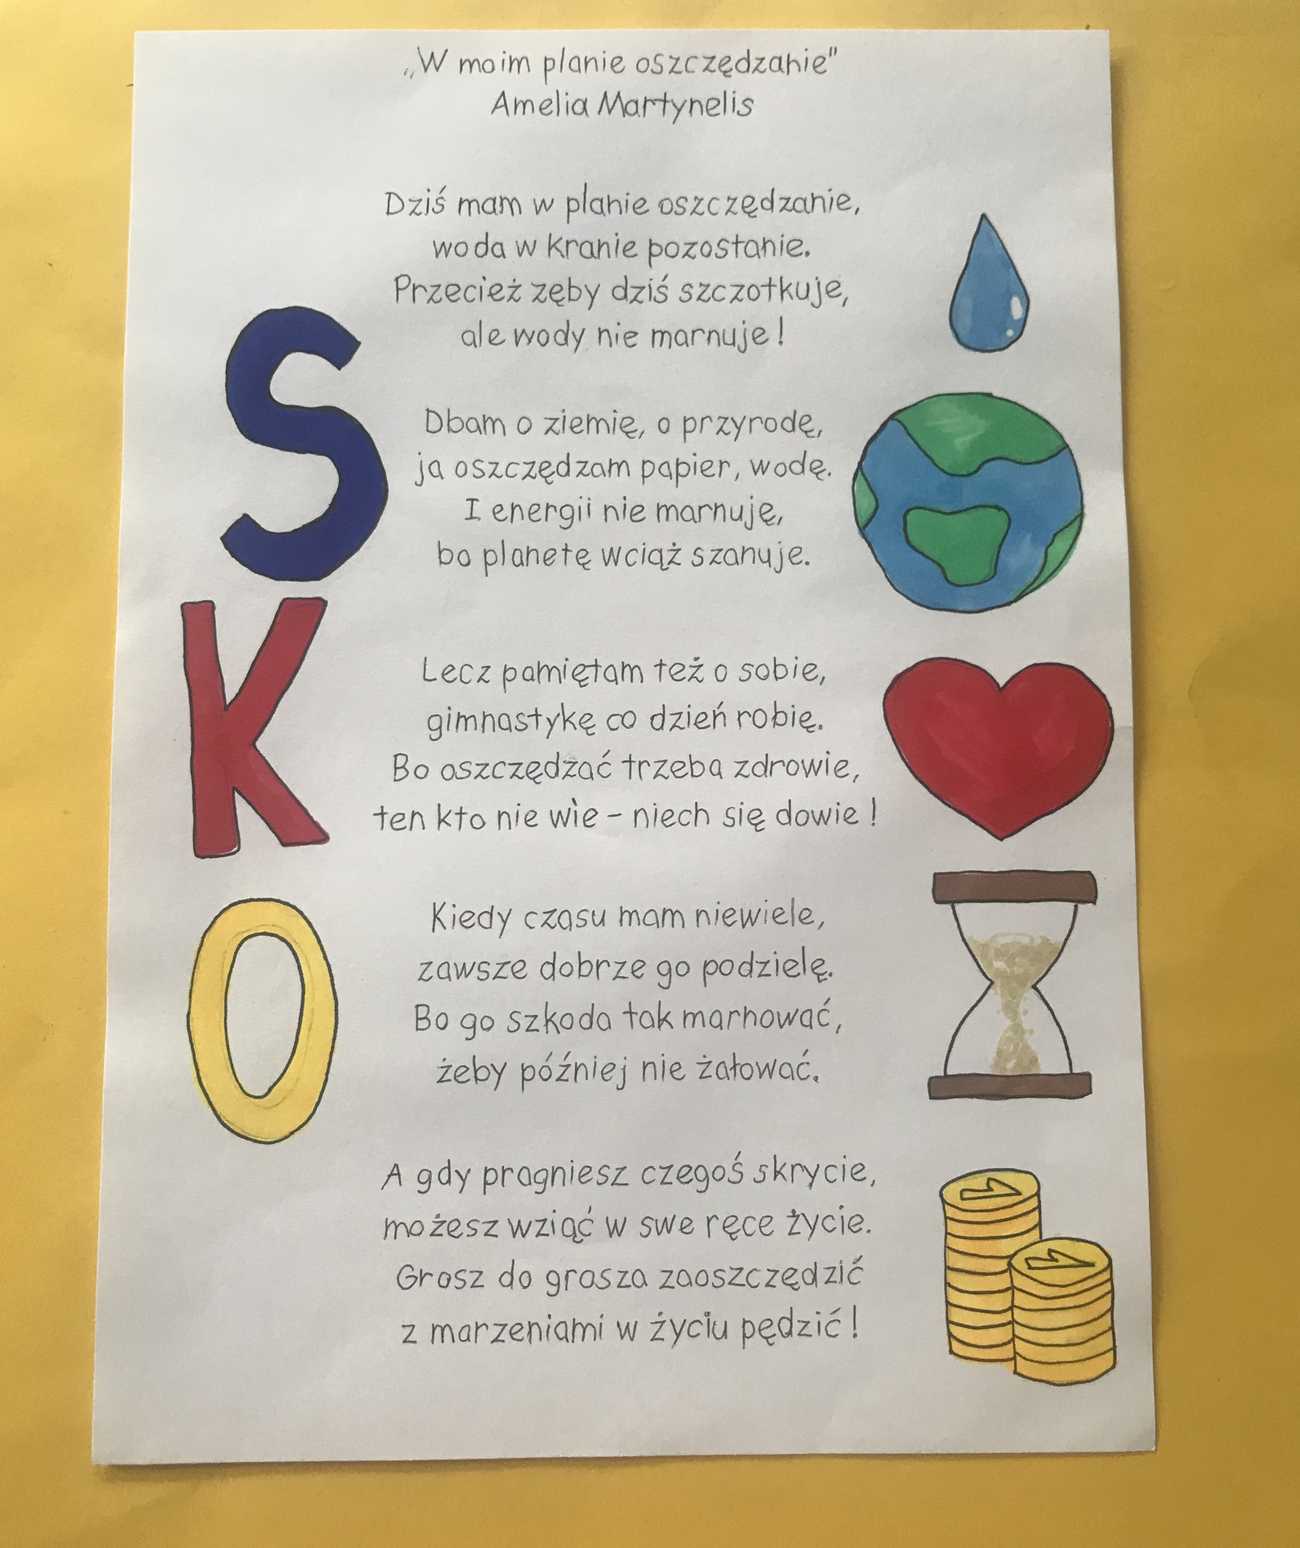 „W moim planie oszczędzanie"
Amelia Martynelis
Dziś mam w planie oszczędzanie,
woda w kranie pozostanie.
Przecież zęby dziś szczotkuje,
ale wody nie marnuje!
Dbam o ziemię, o przyrodę,
ja oszczędzam papier, wodę.
I energii nie marnuję,
bo planetę wciąż szanuje.
Lecz pamiętam też o sobie,
gimnastykę co dzień robię.
Bo oszczędzać trzeba zdrowie,
ten kto nie wie - niech się dowie!
Kiedy czasu mam niewiele,
zawsze dobrze go podzielę.
Bo go szkoda tak marnować,
żeby później nie żałować.
A gdy pragniesz czegoś skrycie,
możesz wziąć w swe ręce życie.
Grosz do grosza zaoszczędzić
z marzeniami w życiu pędzić!
S
K
O
1
1